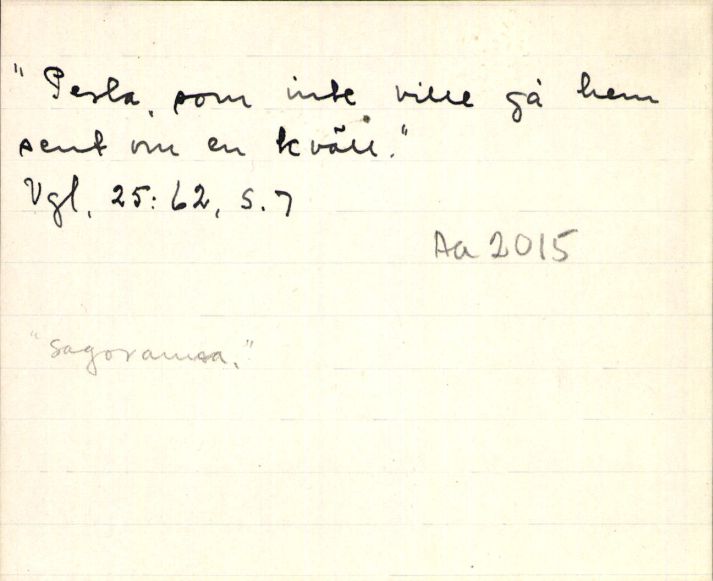 "Perla, som inte ville gå hem
sent om en kväll."
Vgl, 25:62, s. 7
Aa 2015
"sagoramsa."